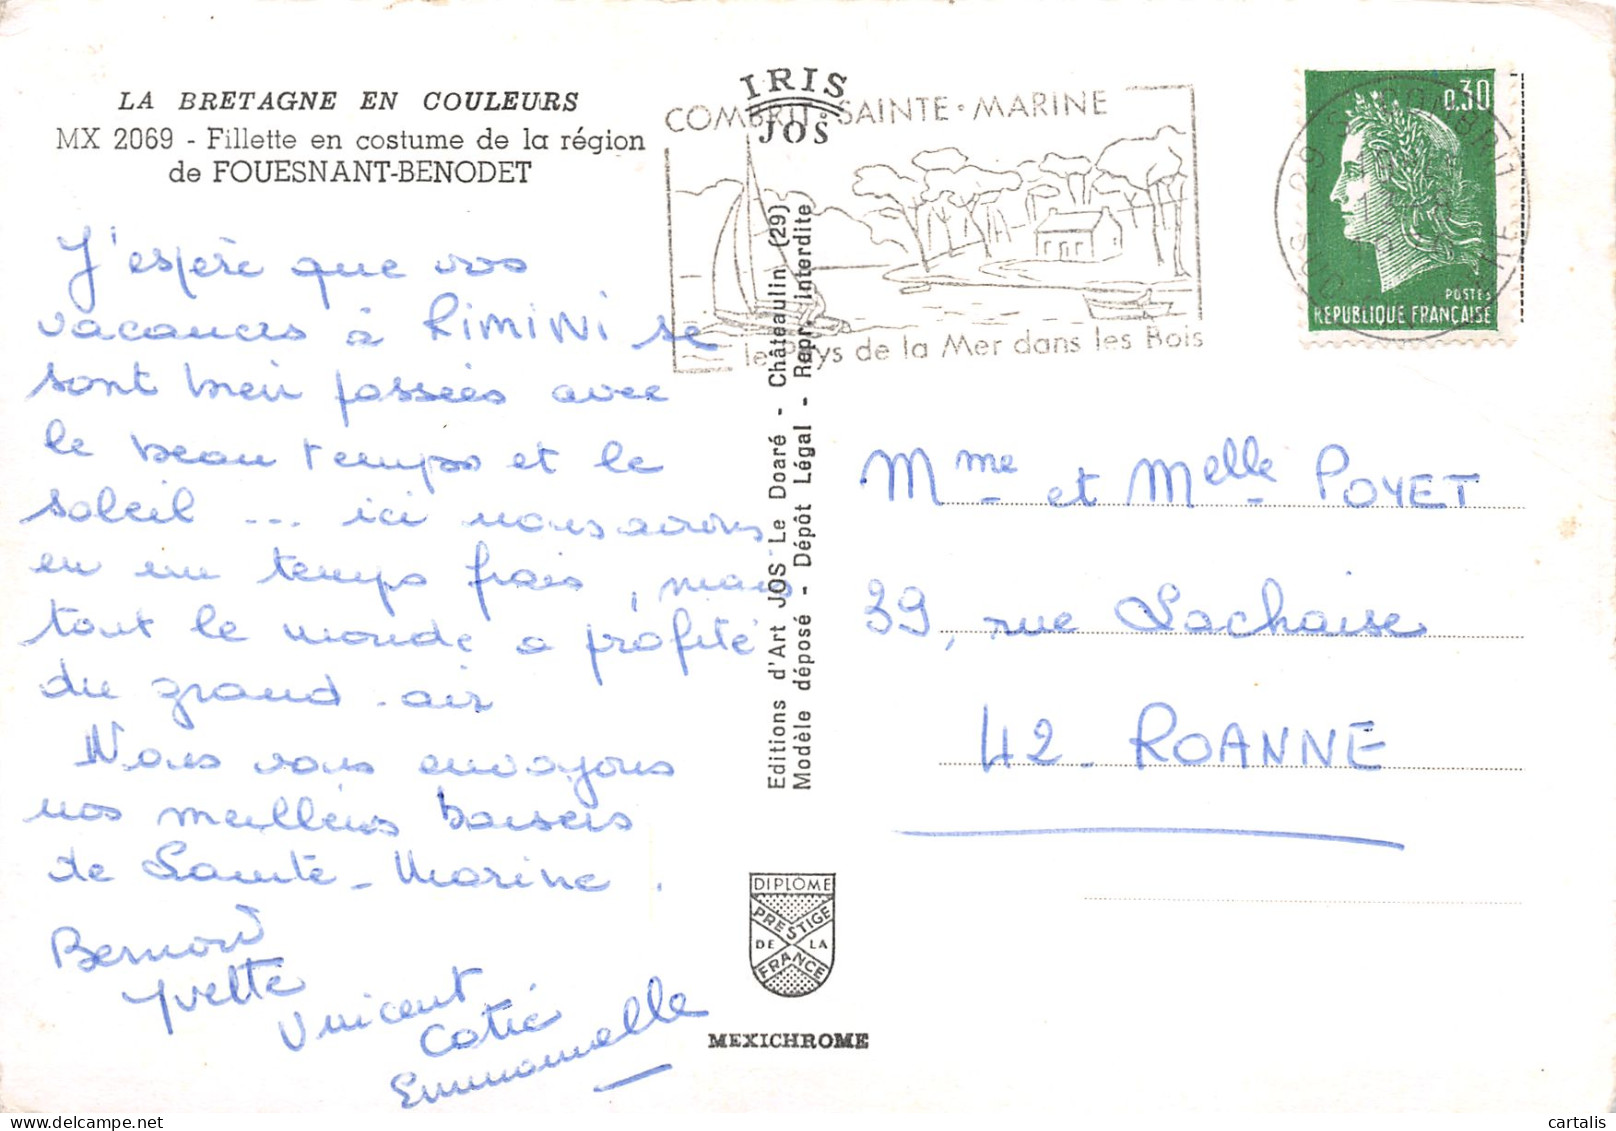 LA BRETAGNE EN COULEURS
MX 2069 - Fillette en costume de la région
de FOUESNANT-BENODET
J'espère que vos
vacances à RIMINI se
sont bien passées avec
le beau temps et le
soleil ... ici nous avons
eu un temps frais, mais
tout le monde a profité
du grand-air
Nous vous envoyons
nos meilleurs baisers
de Sainte-Marine.
Bernard
Yvette
Vincent
Catie
Emmanuelle
IRIS
JOS
COMBRIT-SAINTE-MARINE
le Pays de la Mer dans les Bois
Editions d'Art JOS Le Doaré - Châteaulin (29)
Modèle déposé - Dépôt Légal - Repr. interdite
DIPLOME
PRESTIGE
DE LA
FRANCE
MEXICHROME
0,30
POSTES
REPUBLIQUE FRANÇAISE
29 COMBRIT
Mme et Melle POYET
39, rue Lachaise
42 - ROANNE
cartalis